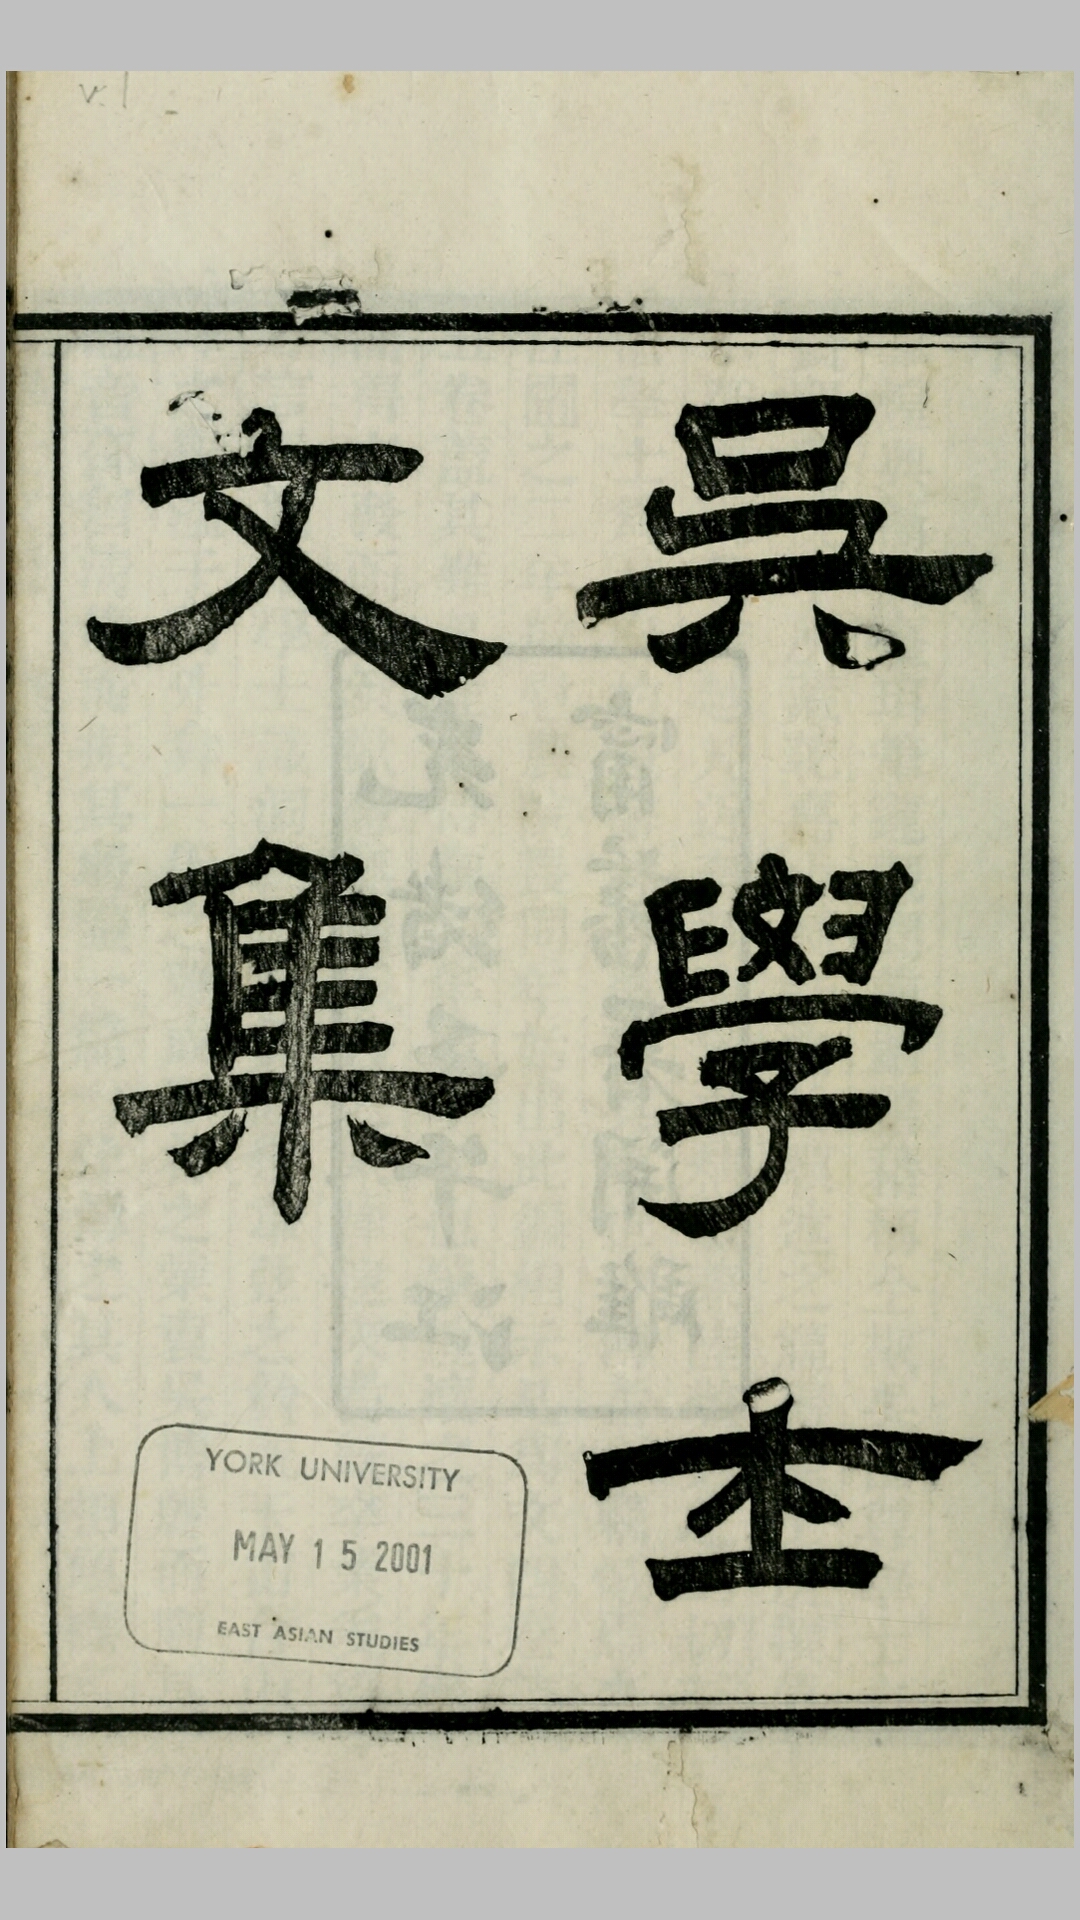 v.1
吳學士
文集
YORK UNIVERSITY
MAY 15 2001
EAST ASIAN STUDIES